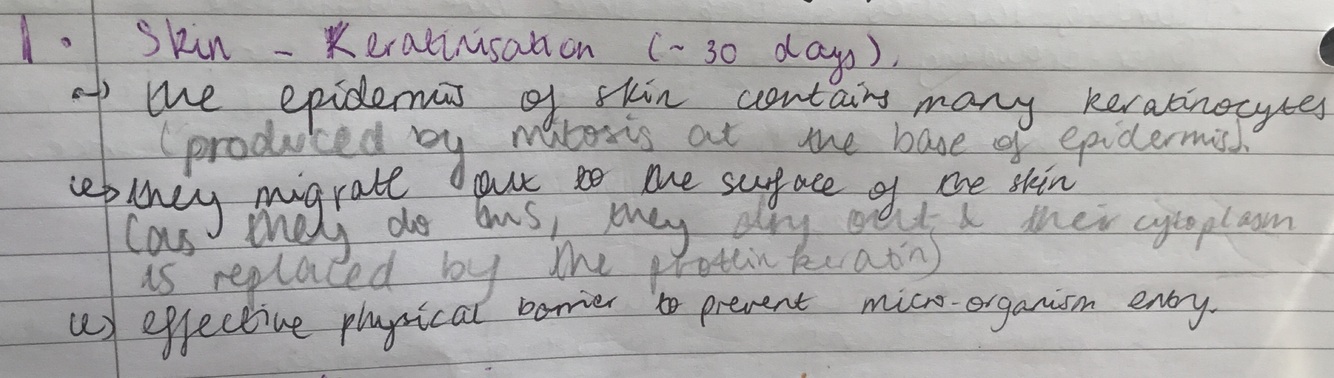 1. Skin - Keratinisation (~ 30 days).
→ the epidermis of skin contains many keratinocytes
(produced by mitosis at the base of epidermis).
they migrate out to the surface of the skin
(as they do this, they dry out & their cytoplasm
is replaced by the protein keratin)
effective physical barrier to prevent micro-organism entry.